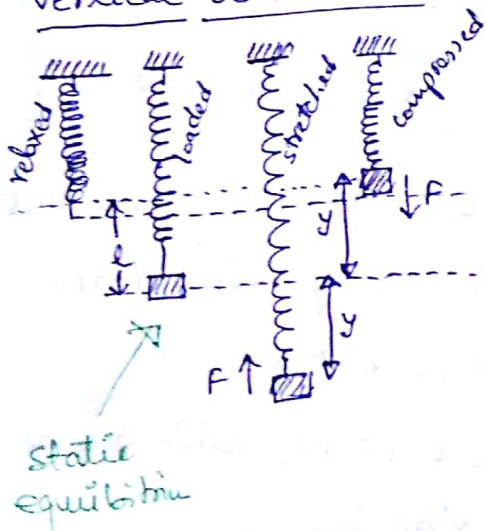 relaxed
loaded
stretched
compressed
F
y
l
y
F
static
equilibrium